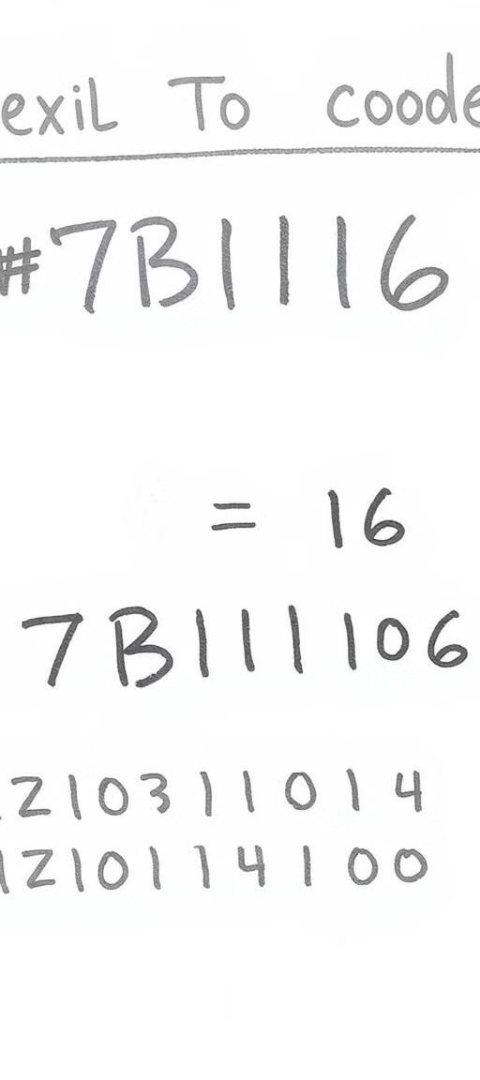 exiL To coode
#7B1116
= 16
7B111106
Z10311014
1Z10114100